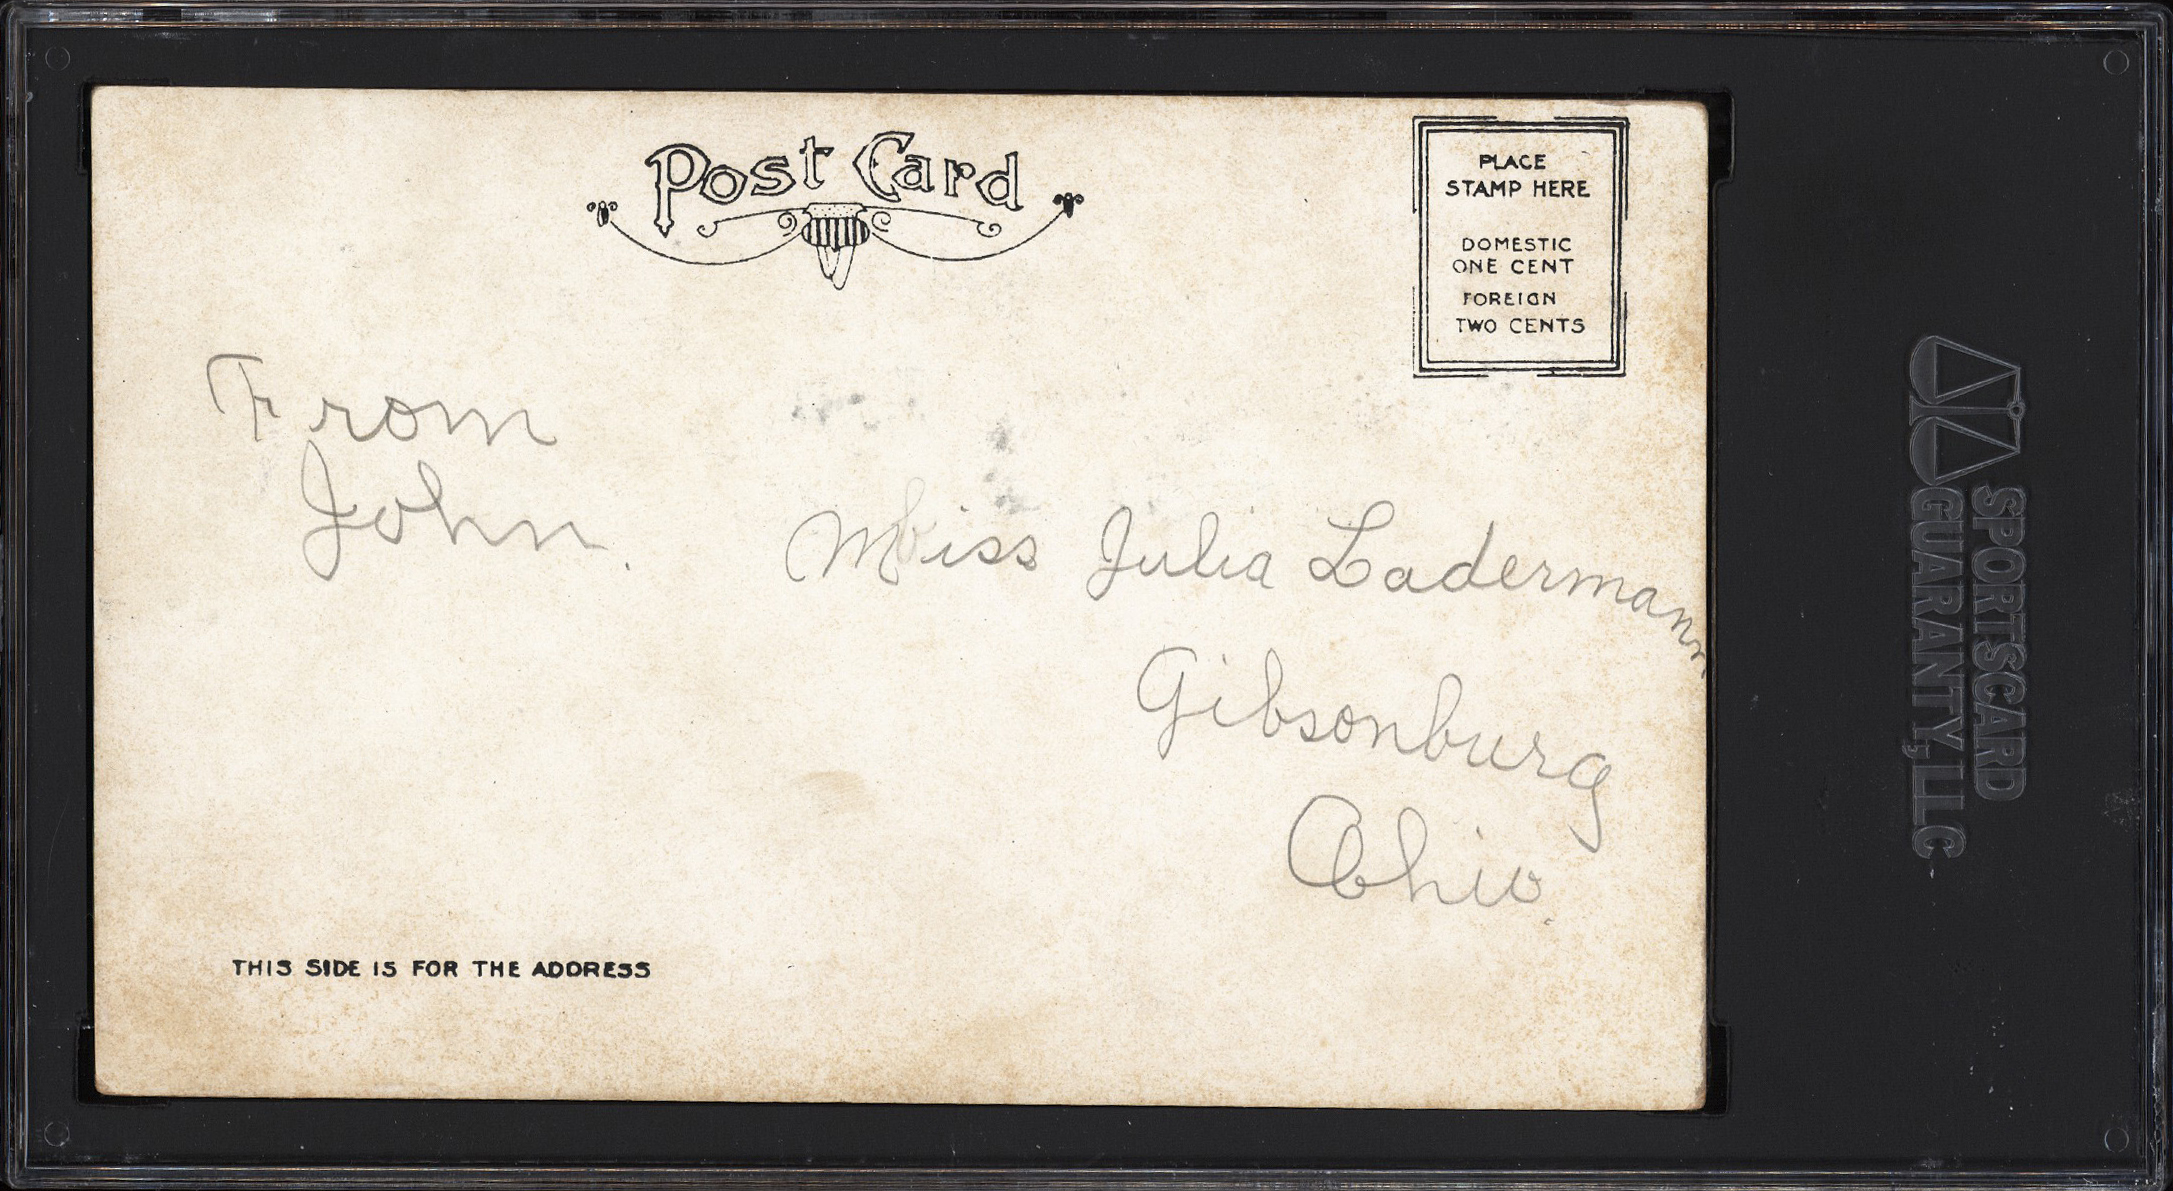 Post Card
PLACE
STAMP HERE
DOMESTIC
ONE CENT
FOREIGN
TWO CENTS
From
John.
Miss Julia Ladermann
Gibsonburg
Ohio.
THIS SIDE IS FOR THE ADDRESS
SPORTSCARD
GUARANTY, LLC